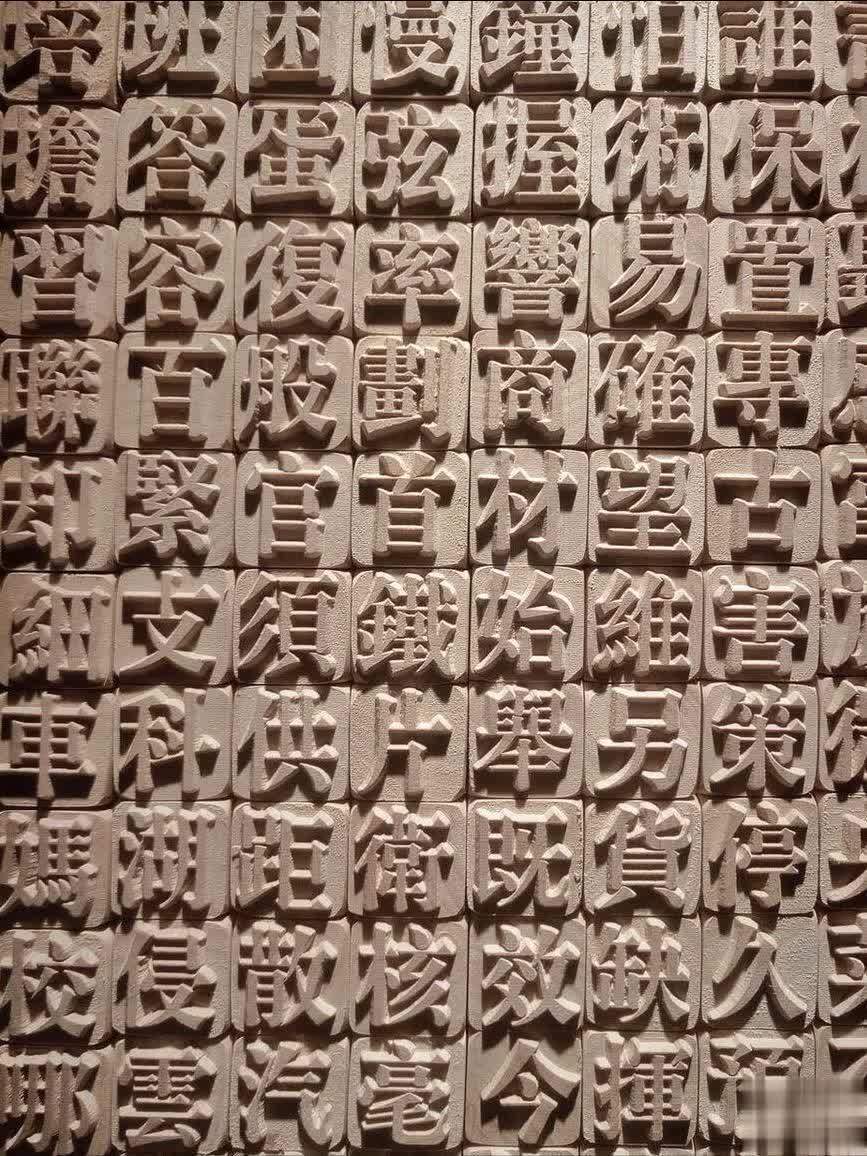 培班困慢鐘怕誰
擔答蛋弦握術保
習容復率響易置
聯百般劃商確專
却緊官首材望古
細支須鐵始維害
車科供片舉另策
媽湖距衛既貨停
校侵散核效缺久
哪雲汽毫今揮預